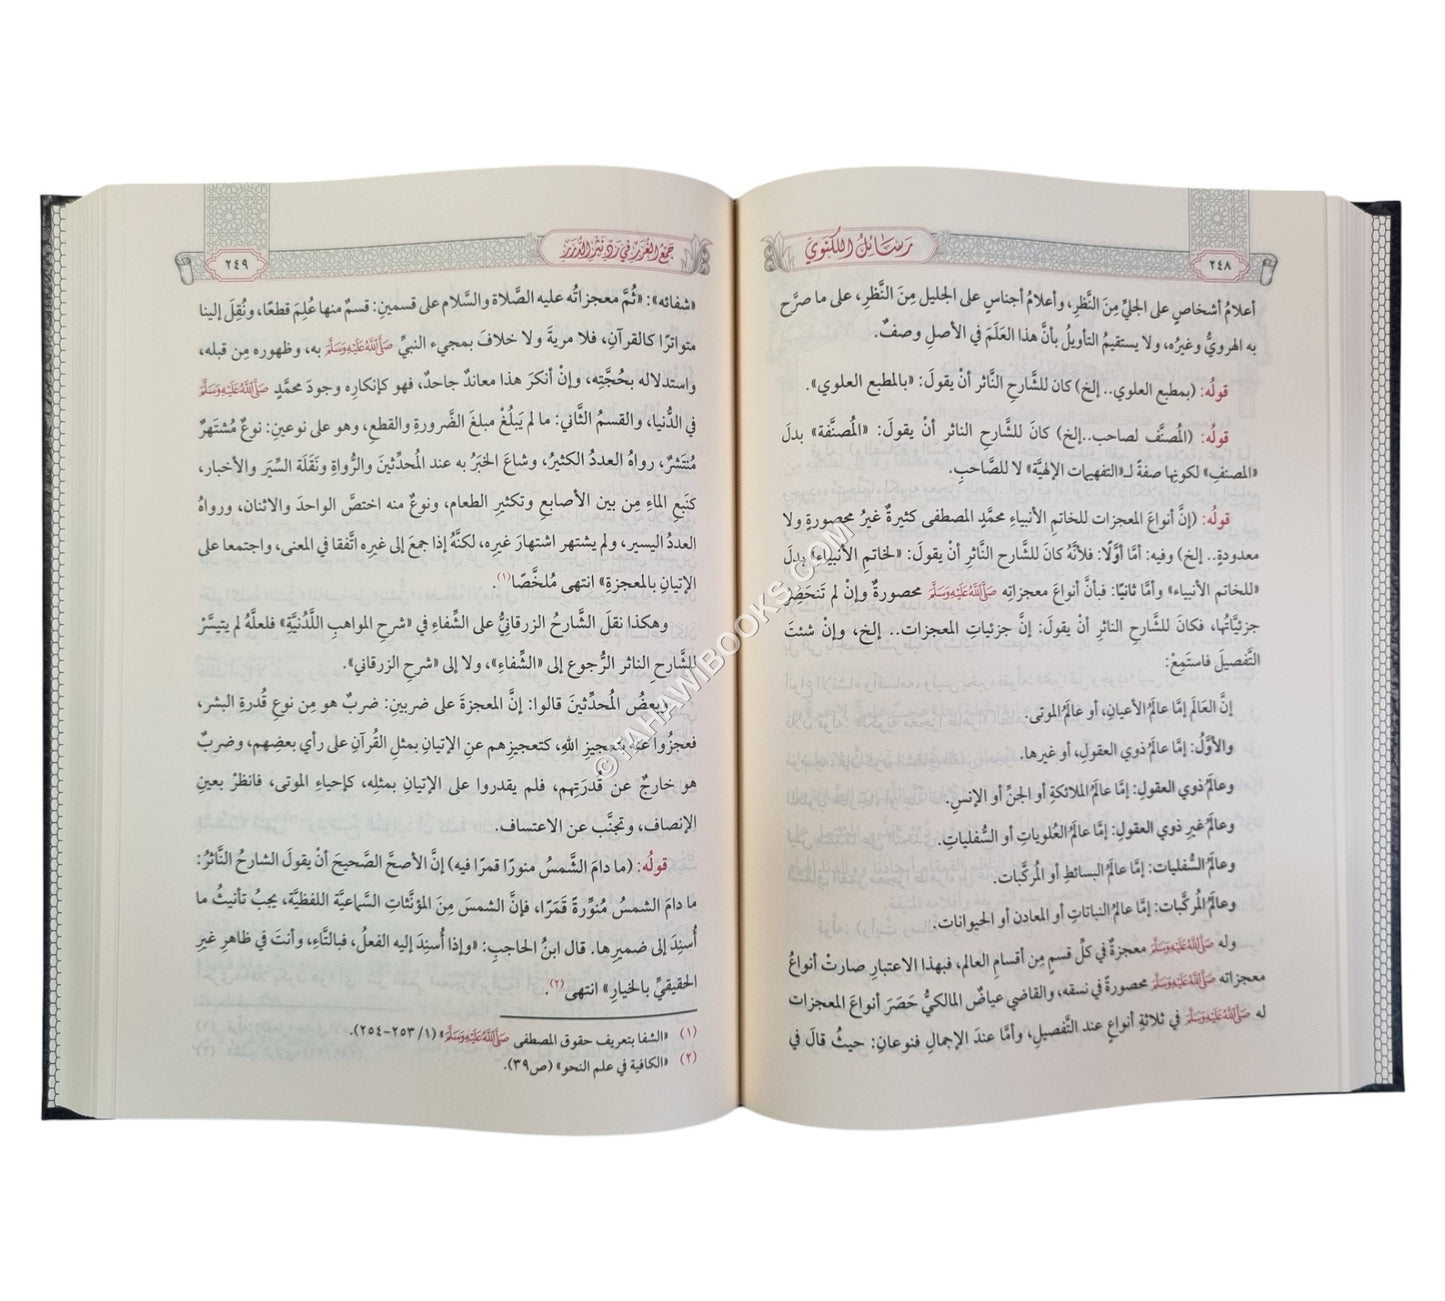 ٢٤٨
رسائل اللكنوي
أعلامُ أشخاصٍ على الجليِّ مِنَ النَّظرِ، وأعلامُ أجناسٍ على الجليل مِنَ النَّظرِ، على ما صرَّح
به الهرويُّ وغيرُه، ولا يستقيمُ التأويلُ بأنَّ هذا العَلَمَ في الأصلِ وصفٌ.
قولُه: (بمطبع العلوي.. إلخ) كان للشَّارحِ النَّاثر أنْ يقولَ: «بالمطبع العلوي».
قولُه: (المُصنَّف لصاحب..إلخ) كانَ للشَّارحِ الناثر أنْ يقولَ: «المُصنَّفة» بدلَ
«المصنفِ» لكونِها صفةً لـ«التفهيمات الإلهيَّة» لا للصَّاحبِ.
قولُه: (إنَّ أنواعَ المعجزات للخاتمِ الأنبياءِ محمَّدٍ المصطفى كثيرةٌ غيرُ محصورةٍ ولا
معدودةٍ.. إلخ) وفيه: أمَّا أوَّلًا: فلأنَّهُ كانَ للشَّارح النَّاثرِ أنْ يقولَ: «لخاتمِ الأنبياء» بدلَ
«للخاتم الأنبياء» وأمَّا ثانيًا: فبأنَّ أنواعَ معجزاتِه صَلَّى اللَّهُ عَلَيْهِ وَسَلَّمَ محصورةٌ وإنْ لم تَنحَصِرْ
جزئيَّاتُها، فكانَ للشَّارحِ الناثرِ أنْ يقولَ: إنَّ جزئياتِ المعجزات.. إلخ، وإنْ شئتَ
التَّفصيلَ فاستَمِعْ:
إنَّ العَالَمَ إمَّا عالَمُ الأعيانِ، أو عالَمُ الموتى.
والأوَّلُ: إمَّا عالَمُ ذوي العقولِ، أو غيرها.
وعالَمُ ذوي العقولِ: إمَّا عالَمُ الملائكةِ أو الجنِّ أو الإنسِ.
وعالَمُ غيرِ ذوي العقولِ: إمَّا عالَمُ العُلوياتِ أو السُّفلياتِ.
وعالَمُ السُّفليات: إمَّا عالَمُ البسائطِ أو المُركَّبات.
وعالَمُ المُركَّباتِ: إمَّا عالَمُ النباتاتِ أو المعادن أو الحيوانات.
وله صَلَّى اللَّهُ عَلَيْهِ وَسَلَّمَ معجزةٌ في كلِّ قسمٍ مِن أقسامِ العالم، فبهذا الاعتبارِ صارتْ أنواعُ
معجزاته صَلَّى اللَّهُ عَلَيْهِ وَسَلَّمَ محصورةً في نسقه، والقاضي عياضٌ المالكيُّ حَصَرَ أنواعَ المعجزات
له صَلَّى اللَّهُ عَلَيْهِ وَسَلَّمَ في ثلاثةِ أنواعٍ عند التَّفصيلِ، وأمَّا عندَ الإجمالِ فنوعانِ: حيثُ قالَ في
جمع الغرر في رد نثر الدرر
٢٤٩
«شفائه»: «ثُمَّ معجزاتُه عليه الصَّلاة والسَّلام على قسمينِ: قسمٌ منها عُلِمَ قطعًا، ونُقِلَ إلينا
متواترًا كالقرآنِ، فلا مريةَ ولا خلافَ بمجيء النبيِّ صَلَّى اللَّهُ عَلَيْهِ وَسَلَّمَ به، وظهوره مِن قبله،
واستدلاله بحُجَّتِه، وإنْ أنكرَ هذا معاندٌ جاحدٌ، فهو كإنكارِه وجودَ محمَّدٍ صَلَّى اللَّهُ عَلَيْهِ وَسَلَّمَ
في الدُّنيا، والقسمُ الثَّاني: ما لم يَبلُغْ مبلغَ الضَّرورةِ والقطعِ، وهو على نوعينِ: نوعٌ مُشتَهَرٌ
مُنتَشرٌ، رواهُ العددُ الكثيرُ، وشاعَ الخبَرُ به عند المحدِّثينَ والرُّواةِ ونَقَلَة السِّيَر والأخبار،
كنَبعِ الماءِ مِن بين الأصابعِ وتكثيرِ الطعام، ونوعٌ منه اختصَّ الواحدَ والاثنان، ورواهُ
العددُ اليسير، ولم يشتهر اشتهارَ غيرِه، لكنَّهُ إذا جمعَ إلى غيرِه اتَّفقا في المعنى، واجتمعا على
الإتيانِ بالمعجزةِ» انتهى مُلخَّصًا(١).
وهكذا نقلَ الشَّارحُ الزرقانيُّ على الشِّفاءِ في «شرحِ المواهبِ اللَّدُنيَّةِ» فلعلَّهُ لم يتيسَّرْ
للشَّارحِ الناثر الرُّجوع إلى «الشِّفاءِ»، ولا إلى «شرحِ الزرقاني».
وبعضُ المُحدِّثينَ قالوا: إنَّ المعجزةَ على ضربين: ضربٌ هو مِن نوعِ قُدرةِ البشر،
فعجزُوا عنه بتعجيزِ اللهِ، كتعجيزِهم عنِ الإتيانِ بمثلِ القُرآنِ على رأي بعضِهم، وضربٌ
هو خارجٌ عن قُدرَتِهم، فلم يقدروا على الإتيانِ بمثلِه، كإحياءِ الموتى، فانظرْ بعينِ
الإنصاف، وتجنَّب عن الاعتساف.
قولُه: (ما دامَ الشَّمسُ منورًا قمرًا فيه) إنَّ الأصحَّ الصَّحيحَ أنْ يقولَ الشارحُ النَّاثرُ:
ما دامَ الشمسُ مُنورِّةً قَمَرًا، فإنَّ الشمسَ مِنَ المؤنَّثاتِ السَّماعيَّة اللفظيَّة، يجبُ تأنيثُ ما
أُسنِدَ إلى ضميرِها. قال ابنُ الحاجبِ: «وإذا أُسنِدَ إليه الفعلُ، فبالتَّاءِ، وأنتَ في ظاهرِ غيرِ
الحقيقيِّ بالخيارِ» انتهى(٢).
(١) «الشفا بتعريف حقوق المصطفى صَلَّى اللَّهُ عَلَيْهِ وَسَلَّمَ» (١/ ٢٥٣-٢٥٤).
(٢) «الكافية في علم النحو» (ص٣٩).
©TAHAWIBOOKS.COM